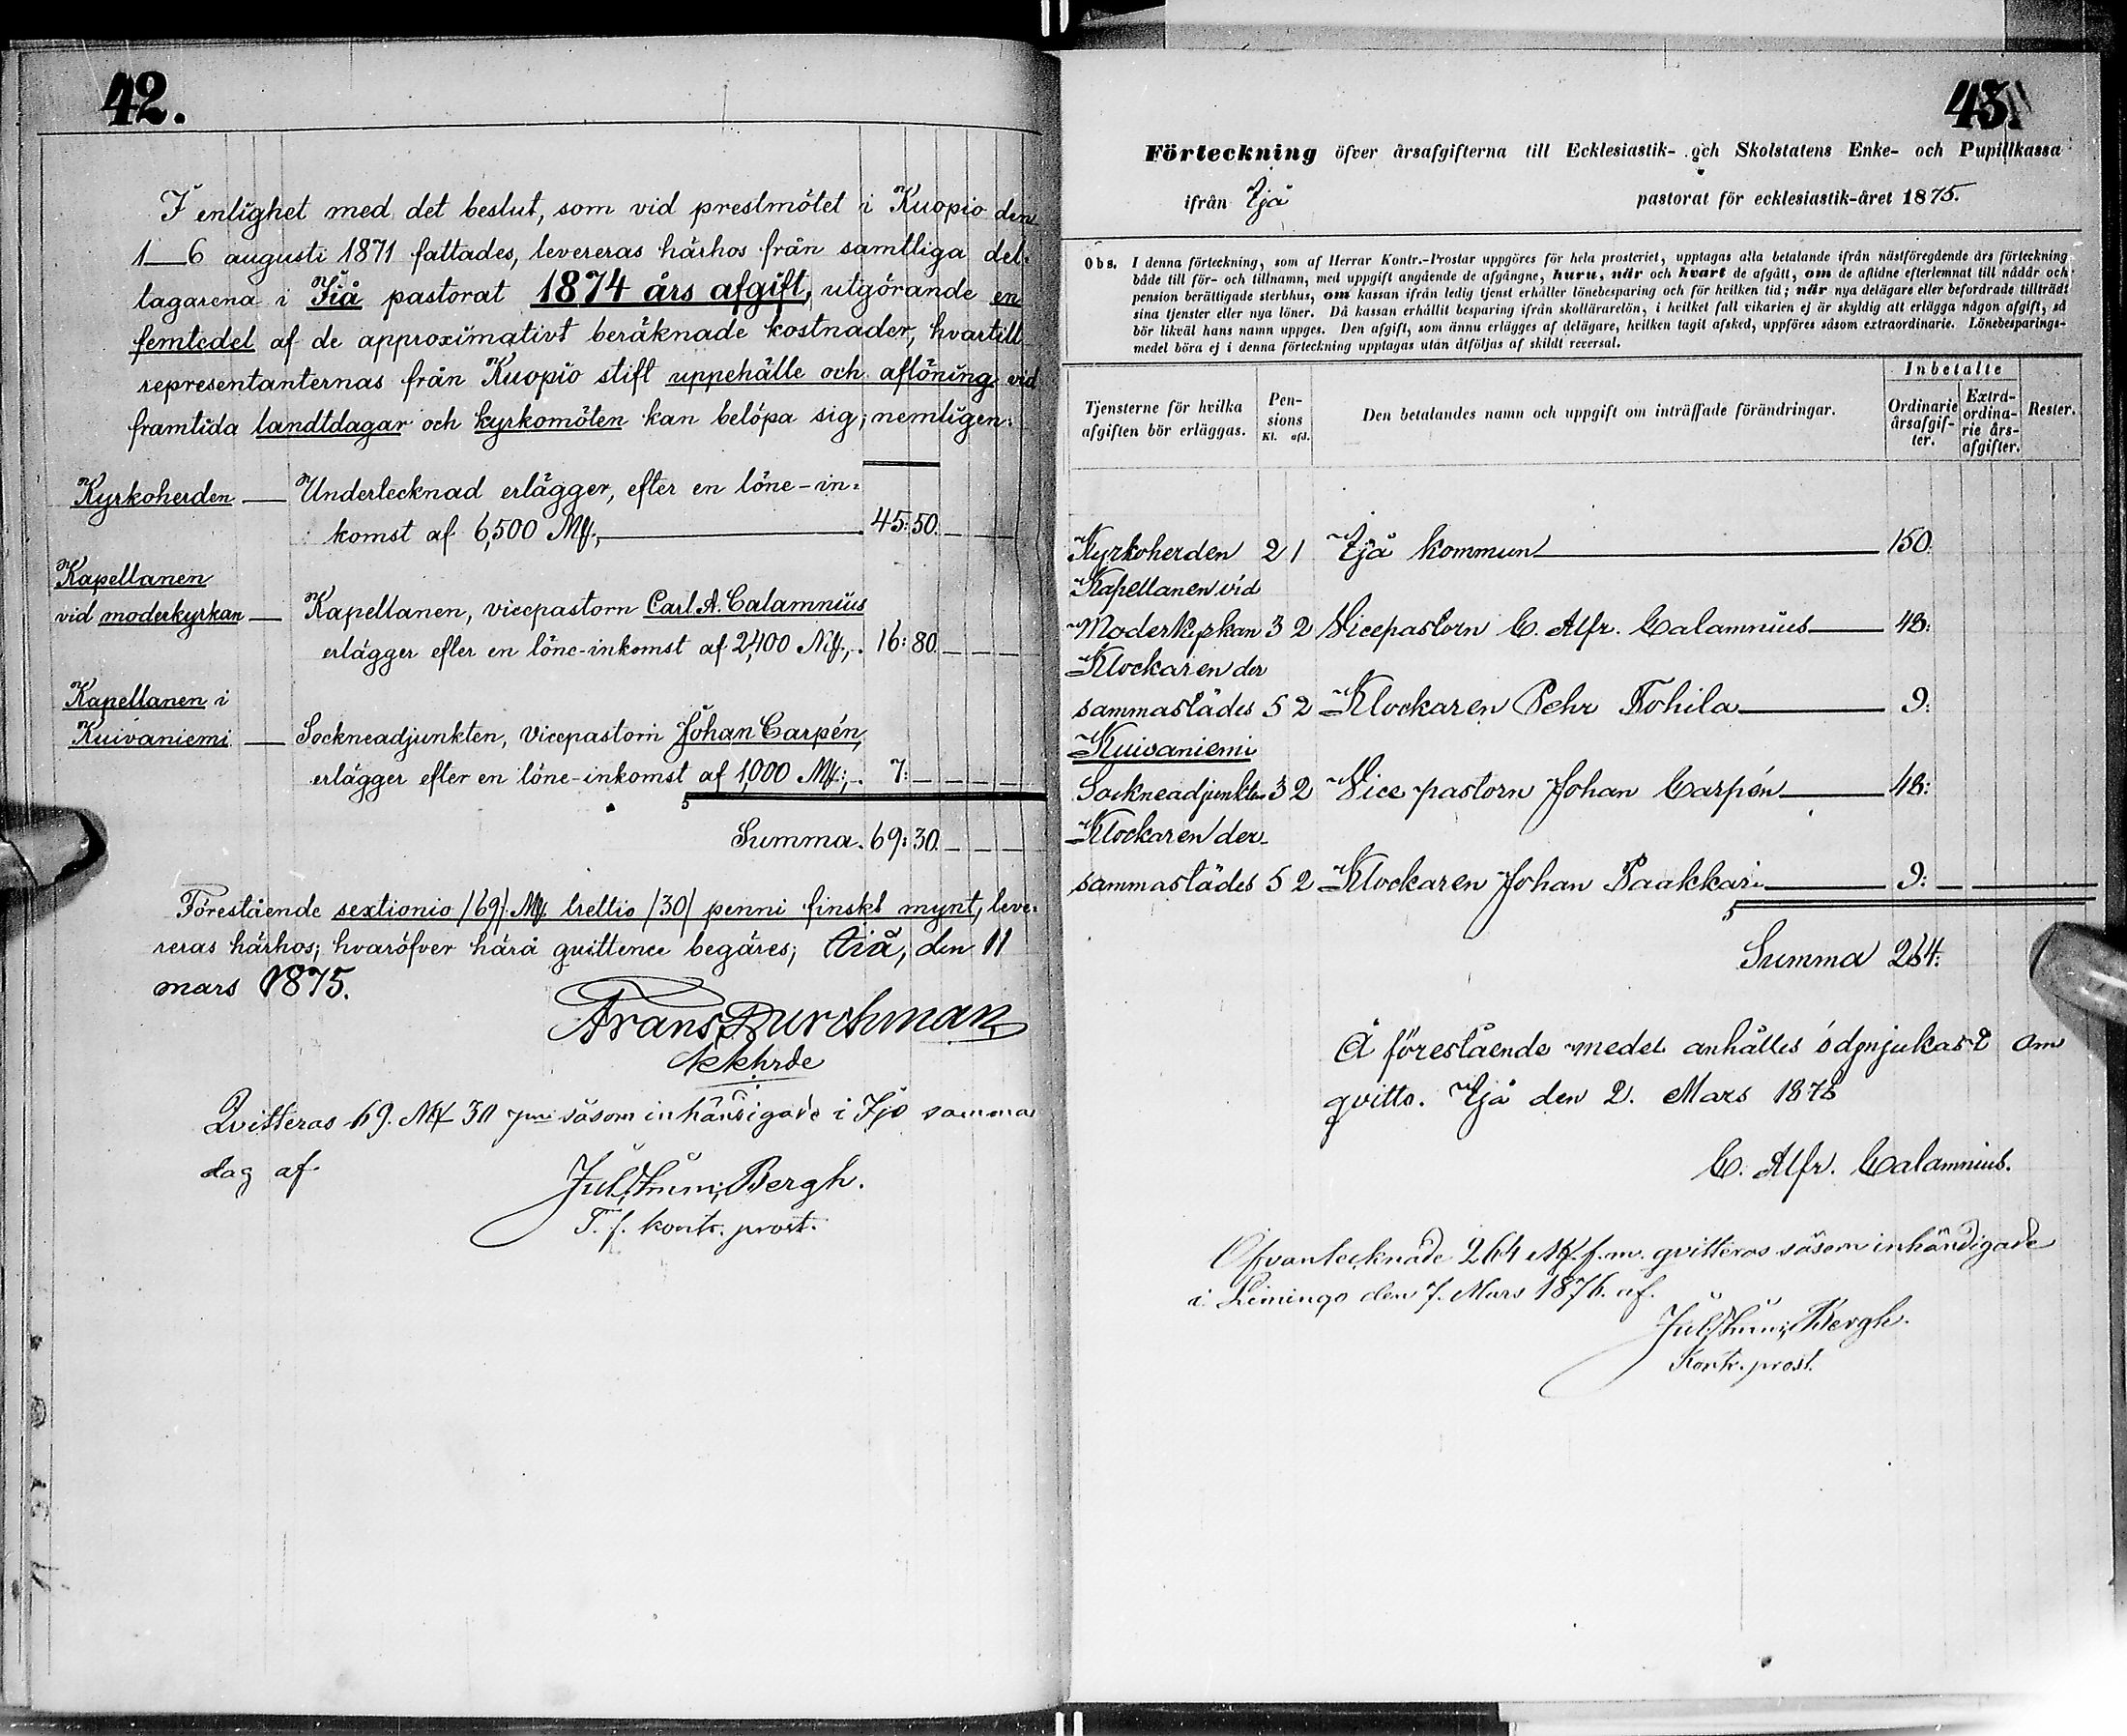 42.
I enlighet med det beslut, som vid prestmötet i Kuopio den
1_6 augusti 1871 fattades, levereras härhos från samtliga del-
lagarena i Jiå pastorat 1874 års afgift, utgörande en
femtedel af de approximativt beräknade kostnader, hvartill
representanternas från Kuopio stift uppehälle och aflöning vid
framtida landtdagar och kyrkomöten kan belöpa sig; nemligen:
Kyrkoherden — Undertecknad erlägger, efter en löne-in-
komst af 6,500 Mf., 45:50.
Kapellanen
vid moderkyrkan — Kapellanen, vicepastorn Carl A. Calamnius
erlägger efter en löne-inkomst af 2,400 Mf., 16:80.
Kapellanen i
Kuivaniemi — Sockneadjunkten, Vicepastorn Johan Carpén,
erlägger efter en löne-inkomst af 1,000 Mf., 7:
Summa. 69:30.
Förestående sextionio /69/ Mf. trettio /30/ penni finskt mynt, leve-
reras härhos; hvaröfver härå quittence begäres; Iiå, den 11
mars 1875.
Frans Durchman
kkhrde
Qvitteras 69. Mf 30 pni såsom inhändigade i Ijo samma
dag af
Jul. Imm. Bergh.
T. f. kontr. prost.
43.
Förteckning öfver årsafgifterna till Ecklesiastik- och Skolstatens Enke- och Pupillkassa
ifrån Ijå pastorat för ecklesiastik-året 1875.
Obs. I denna förteckning, som af Herrar Kontr.-Prostar uppgöres för hela prosteriet, upptagas alla betalande ifrån nästföregående års förteckning
både till för- och tillnamn, med uppgift angående de afgångne, huru, när och hvart de afgått, om de aflidne efterlemnat till nådår och
pension berättigade sterbhus, om kassan ifrån ledig tjenst erhåller lönebesparing och för hvilken tid; när nya delägare eller befordrade tillträdt
sina tjenster eller nya löner. Då kassan erhållit besparing ifrån skollärarelön, i hvilket fall vikarien ej är skyldig att erlägga någon afgift, så
bör likväl hans namn uppges. Den afgift, som ännu erlägges af delägare, hvilken tagit afsked, uppföres såsom extraordinarie. Lönebesparings-
medel böra ej i denna förteckning upptagas utan åtföljas af skildt reversal.
Tjensterne för hvilka
afgiften bör erläggas.
Pen-
sions
Kl. afd.
Den betalandes namn och uppgift om inträffade förändringar.
Inbetalte
Ordinarie
årsafgif-
ter.
Extra-
ordina-
rie års-
afgifter.
Rester.
Kyrkoherden 2 1 Ijå kommun 150.
Kapellanen vid
Moderkyrkan 3 2 Vicepastorn C. Alfr. Calamnius 48:
Klockaren der
sammastädes 5 2 Klockaren Pehr Tohila 9:
Kuivaniemi
Sockneadjunkten 3 2 Vice pastorn Johan Carpén 48:
Klockaren der-
sammastädes 5 2 Klockaren Johan Paakkari 9:
Summa 264:
Å förestående medel anhålles ödmjukast om
qvitto. Ijå den 2. Mars 1876
C. Alfr. Calamnius.
Ofvantecknade 264 Mk. f. m. qvitteras såsom inhändigade
i Limingo den 7. Mars 1876. af.
Jul. Imm. Bergh.
Kontr. prost.